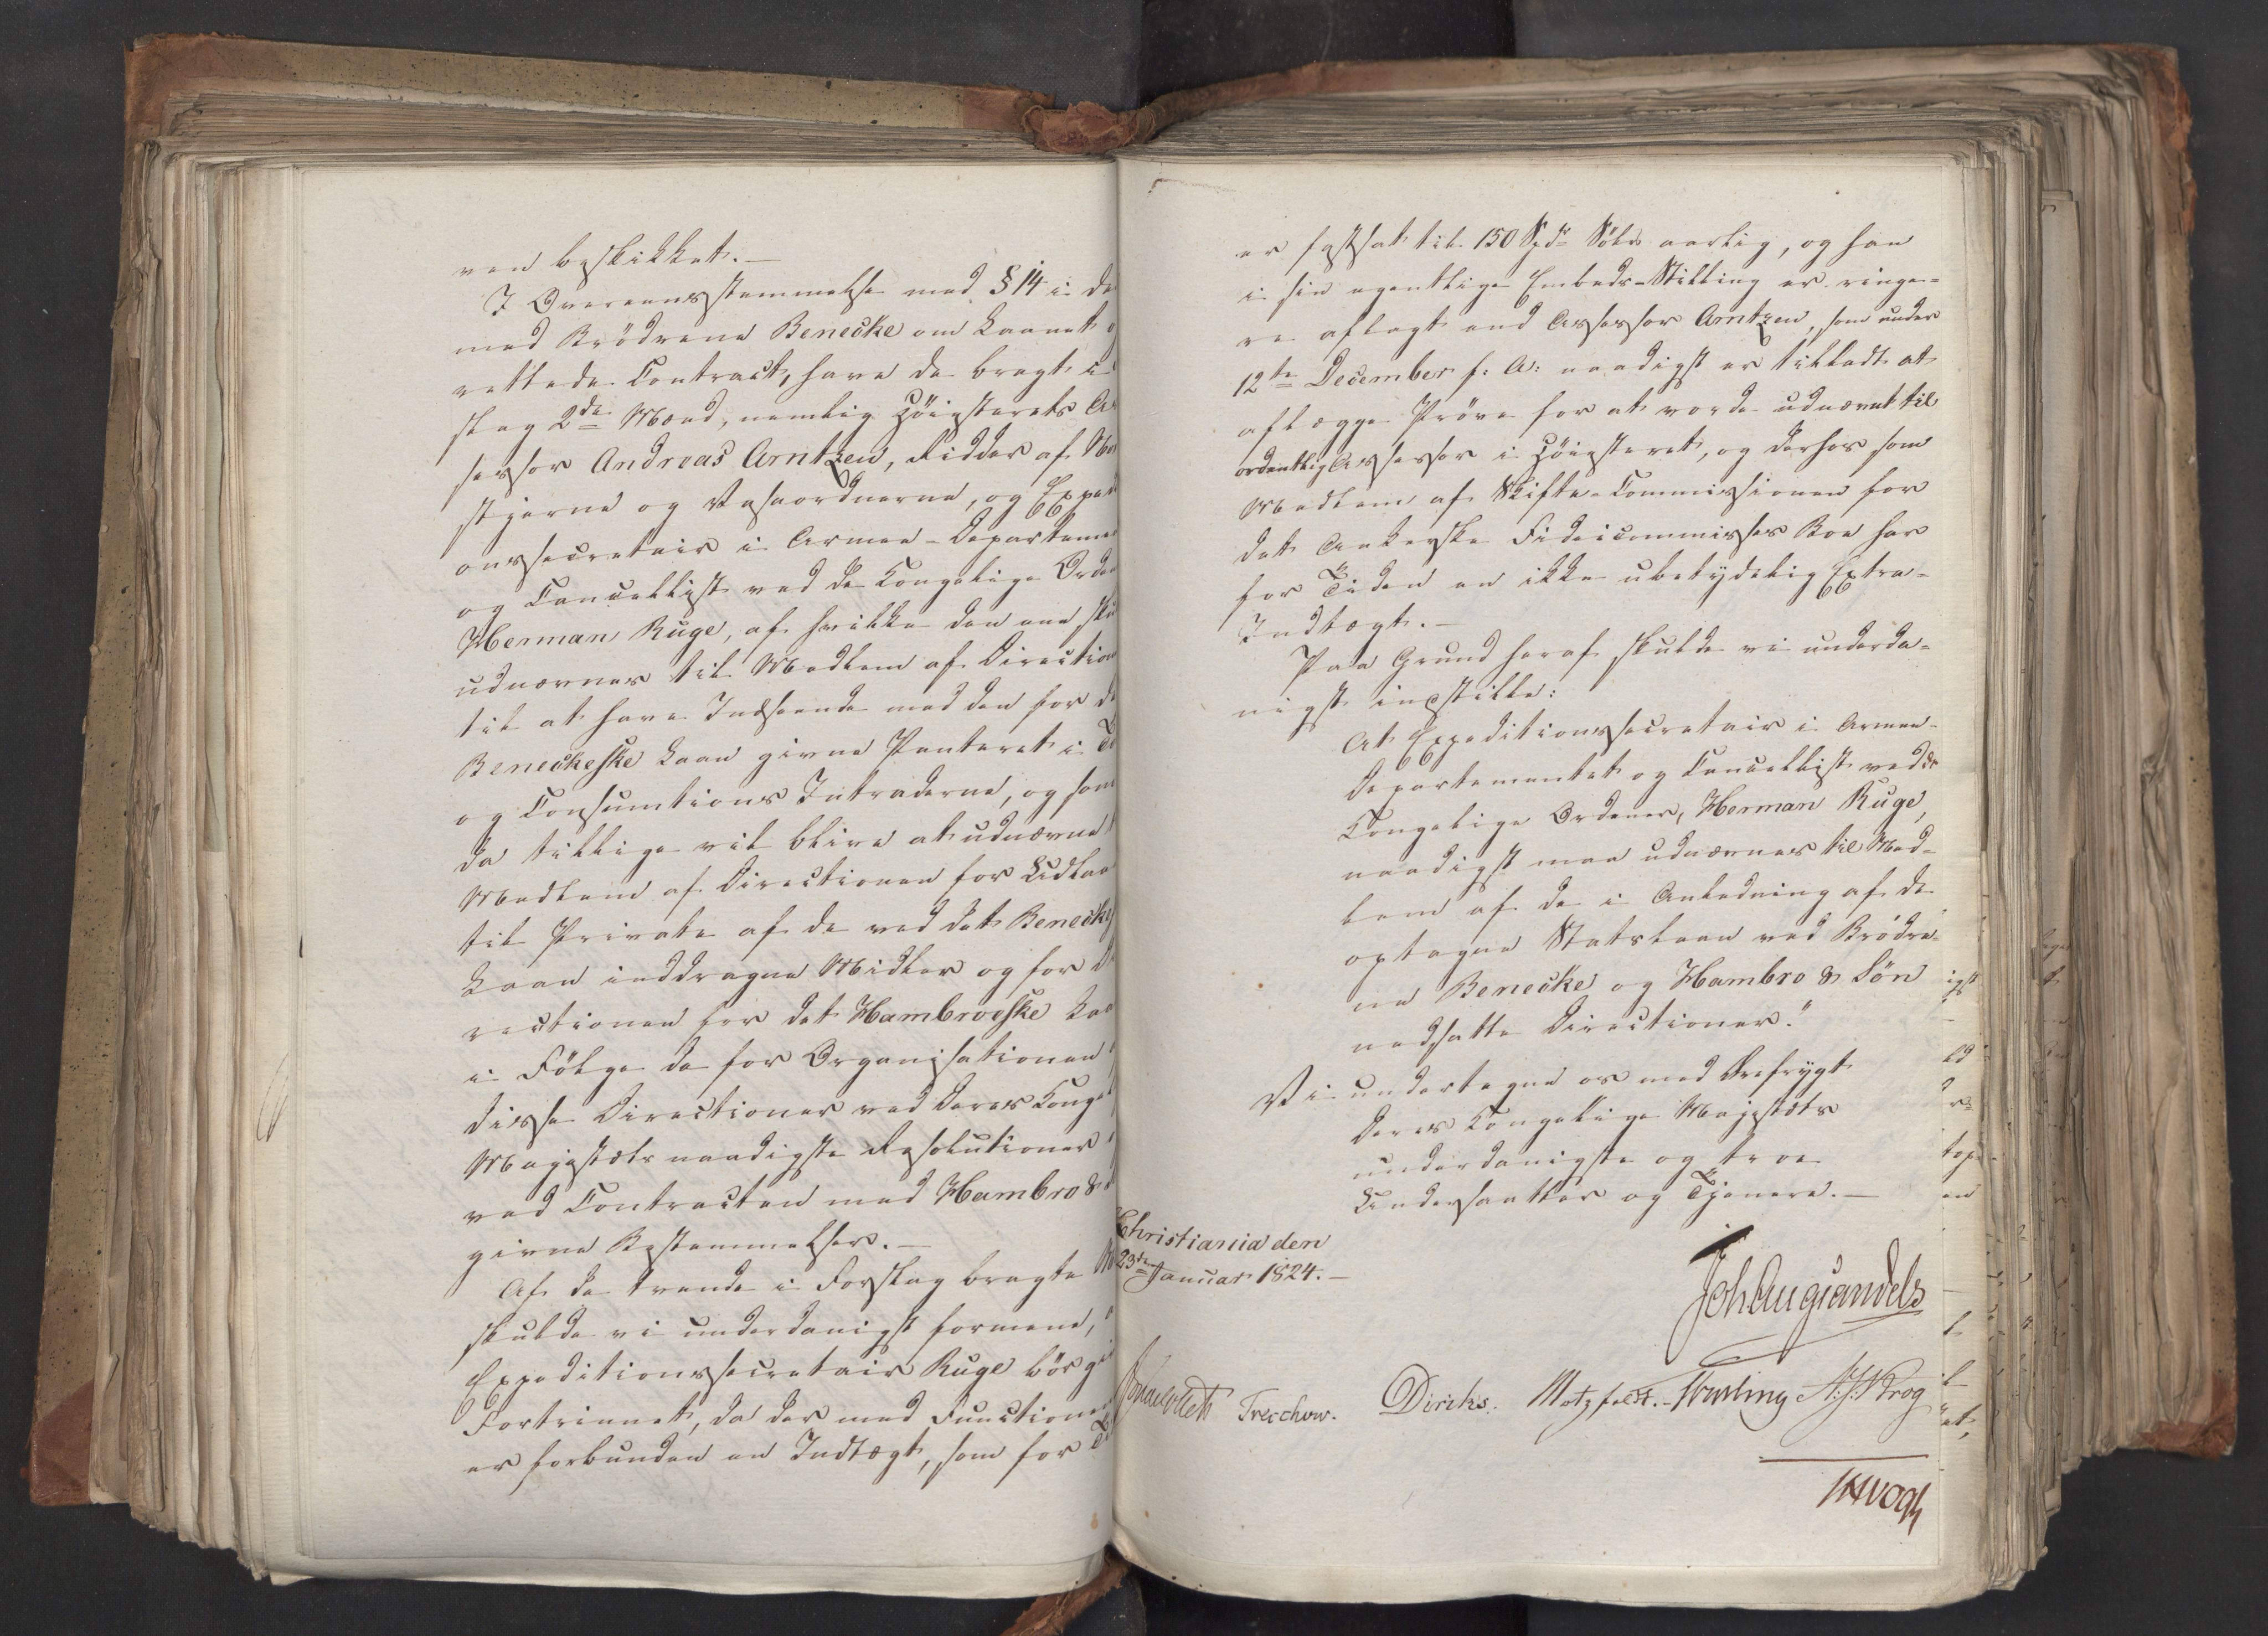 ren beskikket. —
I Overeensstemmelse med § 14 i de
med Brödrene Benecke om Laanet o
rettede Contract, have de bragt i
slag 2de Mænd, nemlig Höiesterets As
sessor Andreas Arntzen, Ridder af Nor
stjerne og Vasaordnerne, og Exped
onssecretair i Armee-Departeme
og Cancellist ved de Kongelige Orde
Herman Ruge, af hvilke den ene sku
udnævnes til Medlem af Direction
til at have Indseende med den for de
Beneckeske Laan givne Panteret i To
og Consumtions Intraderne, og som
da tillige vil blive at udnævne t
Medlem af Directionen for Udlaa
til Private af de ved det Beneck
Laan inddragne Midler og for Di
rectionen for det Hambroeske Laa
i Fölge de for Organisationen
disse Directioner ved Deres Konge
Majestæts naadigste Resolutioner
ved Contracten med Hambro &
givne Bestemmelser. —
Af de tvende i Forslag bragte M
skulde vi underdanigst formene,
Expeditionssecretair Ruge bör gi
Fortrinnet, da der med Functione
er forbunden en Indtægt, som for T
er fastsat til 150 Spd Sölv aarlig, og han
i sin egentlige Embeds-Stilling er ringe-
re aflagt end Assessor Arntzen, som under
12te December f: A: naadigst er tilladt at
aflægge Pröve for at vorde udnævnt til
ordentlig Assessor i Höiesteret, og derhos som
Medlem af Skifte-Commissionen for
det Ankerske Fideicommisses Boe har
for Tiden en ikke ubetydelig Extra-
Indtægt. —
Paa Grund heraf skulde vi underda-
nigst indstille:
At Expeditionssecretair i Armee-
Departementet og Cancellist ved de
Kongelige Ordener, Herman Ruge,
naadigst maa udnævnes til Med-
lem af de i Anledning af de
optagne Statslaan ved Brödre-
ne Benecke og Hambro & Sön
nedsatte Directioner."
Vi undertegne os med Ærefrygt
Deres Kongelige Majestæts
underdanigste og troe
Undersaatter og Tjenere. —
Christiania den
23de Januar 1824. —
Joh Aug Sandels
Sommerhielm Treschow. Diriks. Motzfeldt. Krog
JHVogt